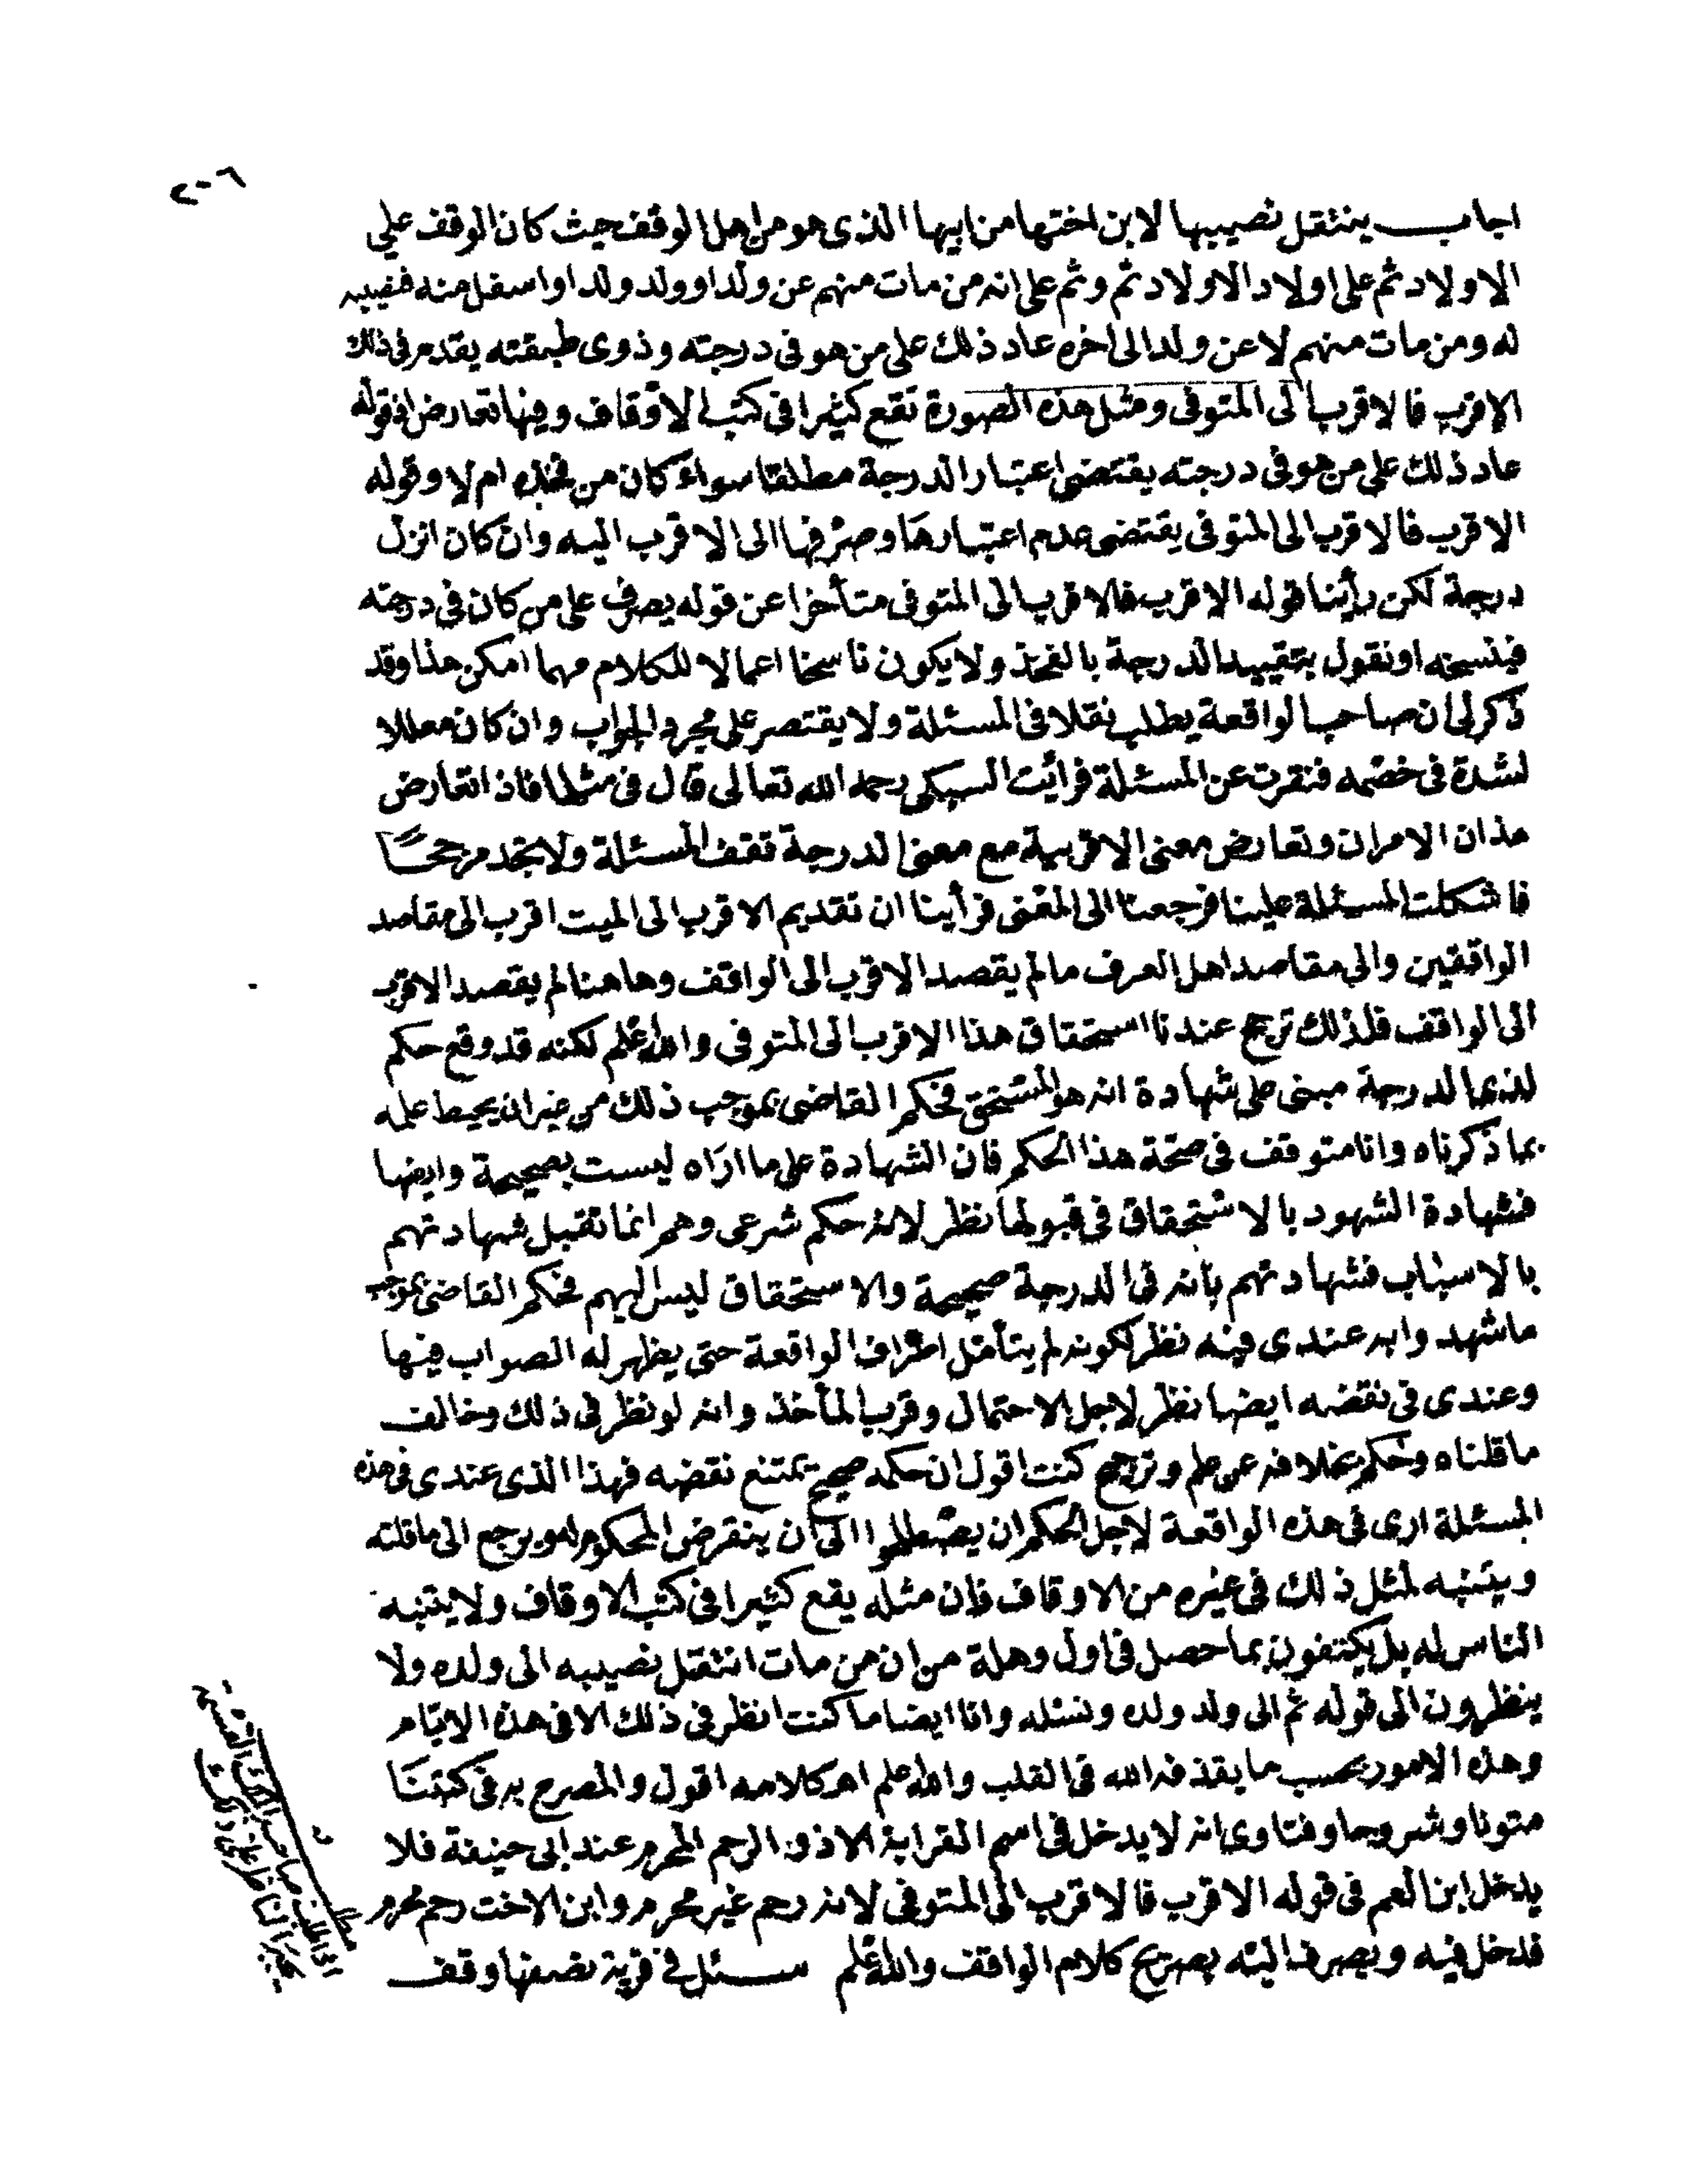 ٢٠٦
اجاب ينتقل نصيبها لابن اختها من ابيها الذى هو من اهل الوقف حيث كان الوقف على
الاولاد ثم على اولاد الاولاد ثم وثم على انه من مات منهم عن ولد او ولد ولد او اسفل منه فنصيبه
له ومن مات منهم لا عن ولد الى اخره عاد ذلك على من هو فى درجته وذوى طبقته يقدم فى ذلك
الاقرب فالاقرب الى المتوفى ومثل هذه الصورة تقع كثيرا فى كتب الاوقاف وفيها تعارض اذ قوله
عاد ذلك على من هو فى درجته يقتضى اعتبار الدرجة مطلقا سواء كان من فخذه ام لا وقوله
الاقرب فالاقرب الى المتوفى يقتضى عدم اعتبارها وصرفها الى الاقرب اليه وان كان انزل
درجة لكن رأينا قوله الاقرب فالاقرب الى المتوفى متأخرا عن قوله يصرف على من كان فى درجته
فينسخه او نقول بتقييد الدرجة بالفخذ ولا يكون ناسخا اعمالا للكلام مهما امكن هذا وقد
ذكر لى ان صاحب الواقعة يطلب نقلا فى المسئلة ولا يقتصر على مجرد الجواب وان كان معللا
لشدة فى خصمه فنقرت عن المسئلة فرأيت السبكى رحمه الله تعالى قال فى مثلها فاذا تعارض
هذان الامران وتعارض معنى الاقربية مع معنى الدرجة تقف المسئلة ولا نجد مرجحا
فاشكلت المسئلة علينا فرجعنا الى المعنى فرأينا ان تقديم الاقرب الى الميت اقرب الى مقاصد
الواقفين والى مقاصد اهل العرف ما لم يقصد الاقرب الى الواقف وهاهنا لم يقصد الاقرب
الى الواقف فلذلك ترجح عندنا استحقاق هذا الاقرب الى المتوفى والله اعلم لكنه قد وقع حكم
لذى الدرجة مبنى على شهادة انه هو المستحق فحكم القاضى بموجب ذلك من غير ان يحيط علمه
بما ذكرناه وانا متوقف فى صحة هذا الحكم فان الشهادة على ما اراه ليست بصحيحة وايضا
فشهادة الشهود بالاستحقاق فى قبولها نظر لانه حكم شرعى وهم انما تقبل شهادتهم
بالاسباب فشهادتهم بانه فى الدرجة صحيحة والاستحقاق ليس اليهم فحكم القاضى بموجب
ما شهدوا به عندى فيه نظر لكونه لم يتأمل اطراف الواقعة حتى يظهر له الصواب فيها
وعندى فى نقضه ايضا نظر لاجل الاحتمال وقرب المأخذ وانه لو نظر فى ذلك وخالف
ما قلناه وحكم بخلافه عن علم وترجيح كنت اقول ان حكمه صحيح يمتنع نقضه فهذا الذى عندى فى هذه
المسئلة ارى فى هذه الواقعة لاجل الحكم ان يصطلحوا الى ان ينقرض المحكوم له ويرجع الى ما قلته
ويتنبه لمثل ذلك فى غيره من الاوقاف فان مثله يقع كثيرا فى كتب الاوقاف ولا يتنبه
الناس له بل يكتفون بما حصل فى اول وهلة من ان من مات انتقل نصيبه الى ولده ولا
ينظرون الى قوله ثم الى ولد ولده ونسله وانا ايضا ما كنت انظر فى ذلك الا فى هذه الايام
وهذه الامور بحسب ما يقذفه الله فى القلب والله اعلم اهـ كلامه اقول والمصرح به فى كتبنا
متونا وشروحا وفتاوى انه لا يدخل فى اسم القرابة الا ذو الرحم المحرم عند ابى حنيفة فلا
يدخل ابن العم فى قوله الاقرب فالاقرب الى المتوفى لانه رحم غير محرم وابن الاخت رحم محرم
فدخل فيه ويصرف اليه بصريح كلام الواقف والله اعلم سئل فى قرية نصفها وقف